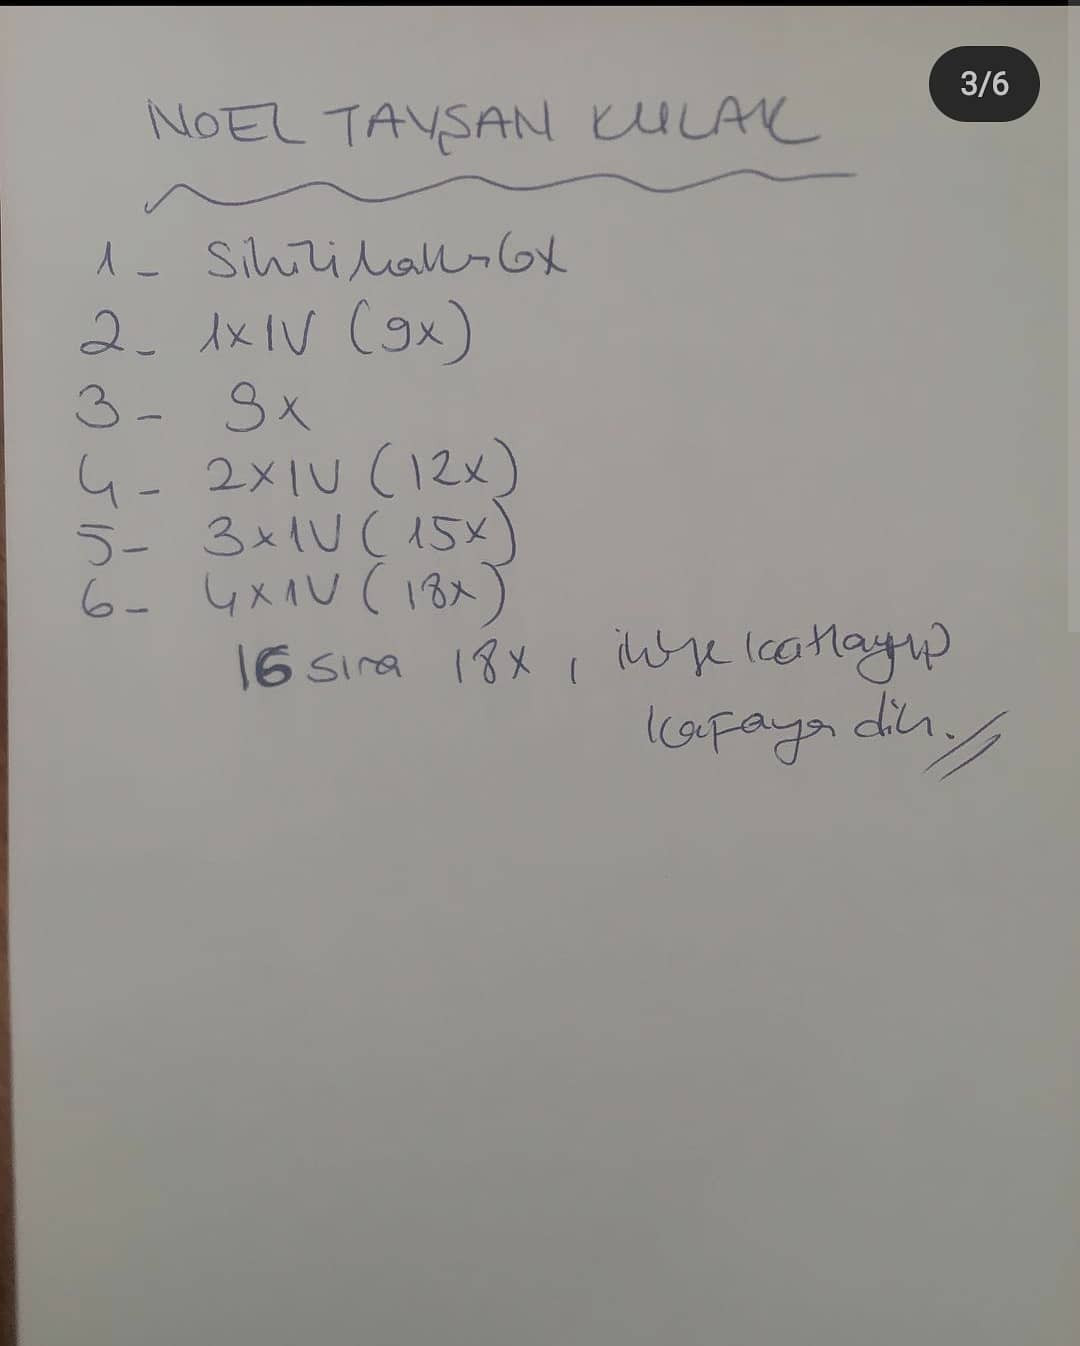 3/6
NOEL TAVŞAN KULAK
1- Sihirli halka 6x
2- 1xIV (9x)
3- 9x
4- 2xIV (12x)
5- 3xIV (15x)
6- 4xIV (18x)
16 sıra 18x, ikiye katlayıp
kafaya dik.